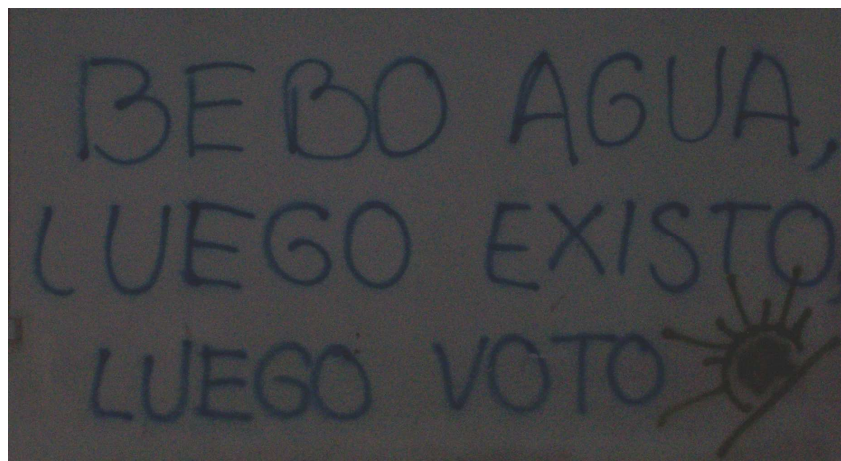 BEBO AGUA,
LUEGO EXISTO,
LUEGO VOTO